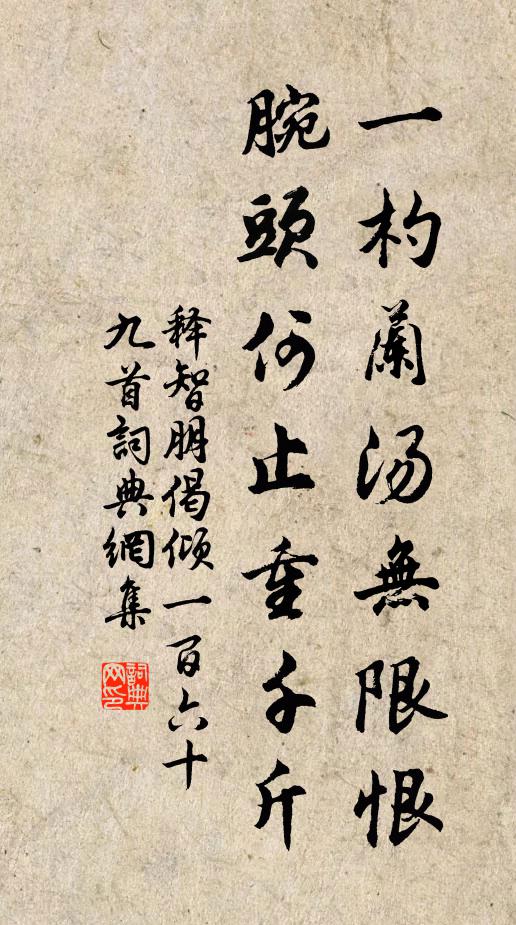 一杓蘭汤無限恨
腕頭何止重千斤
释智朋偈倾一百六十
九首詞典網集
詞典网印